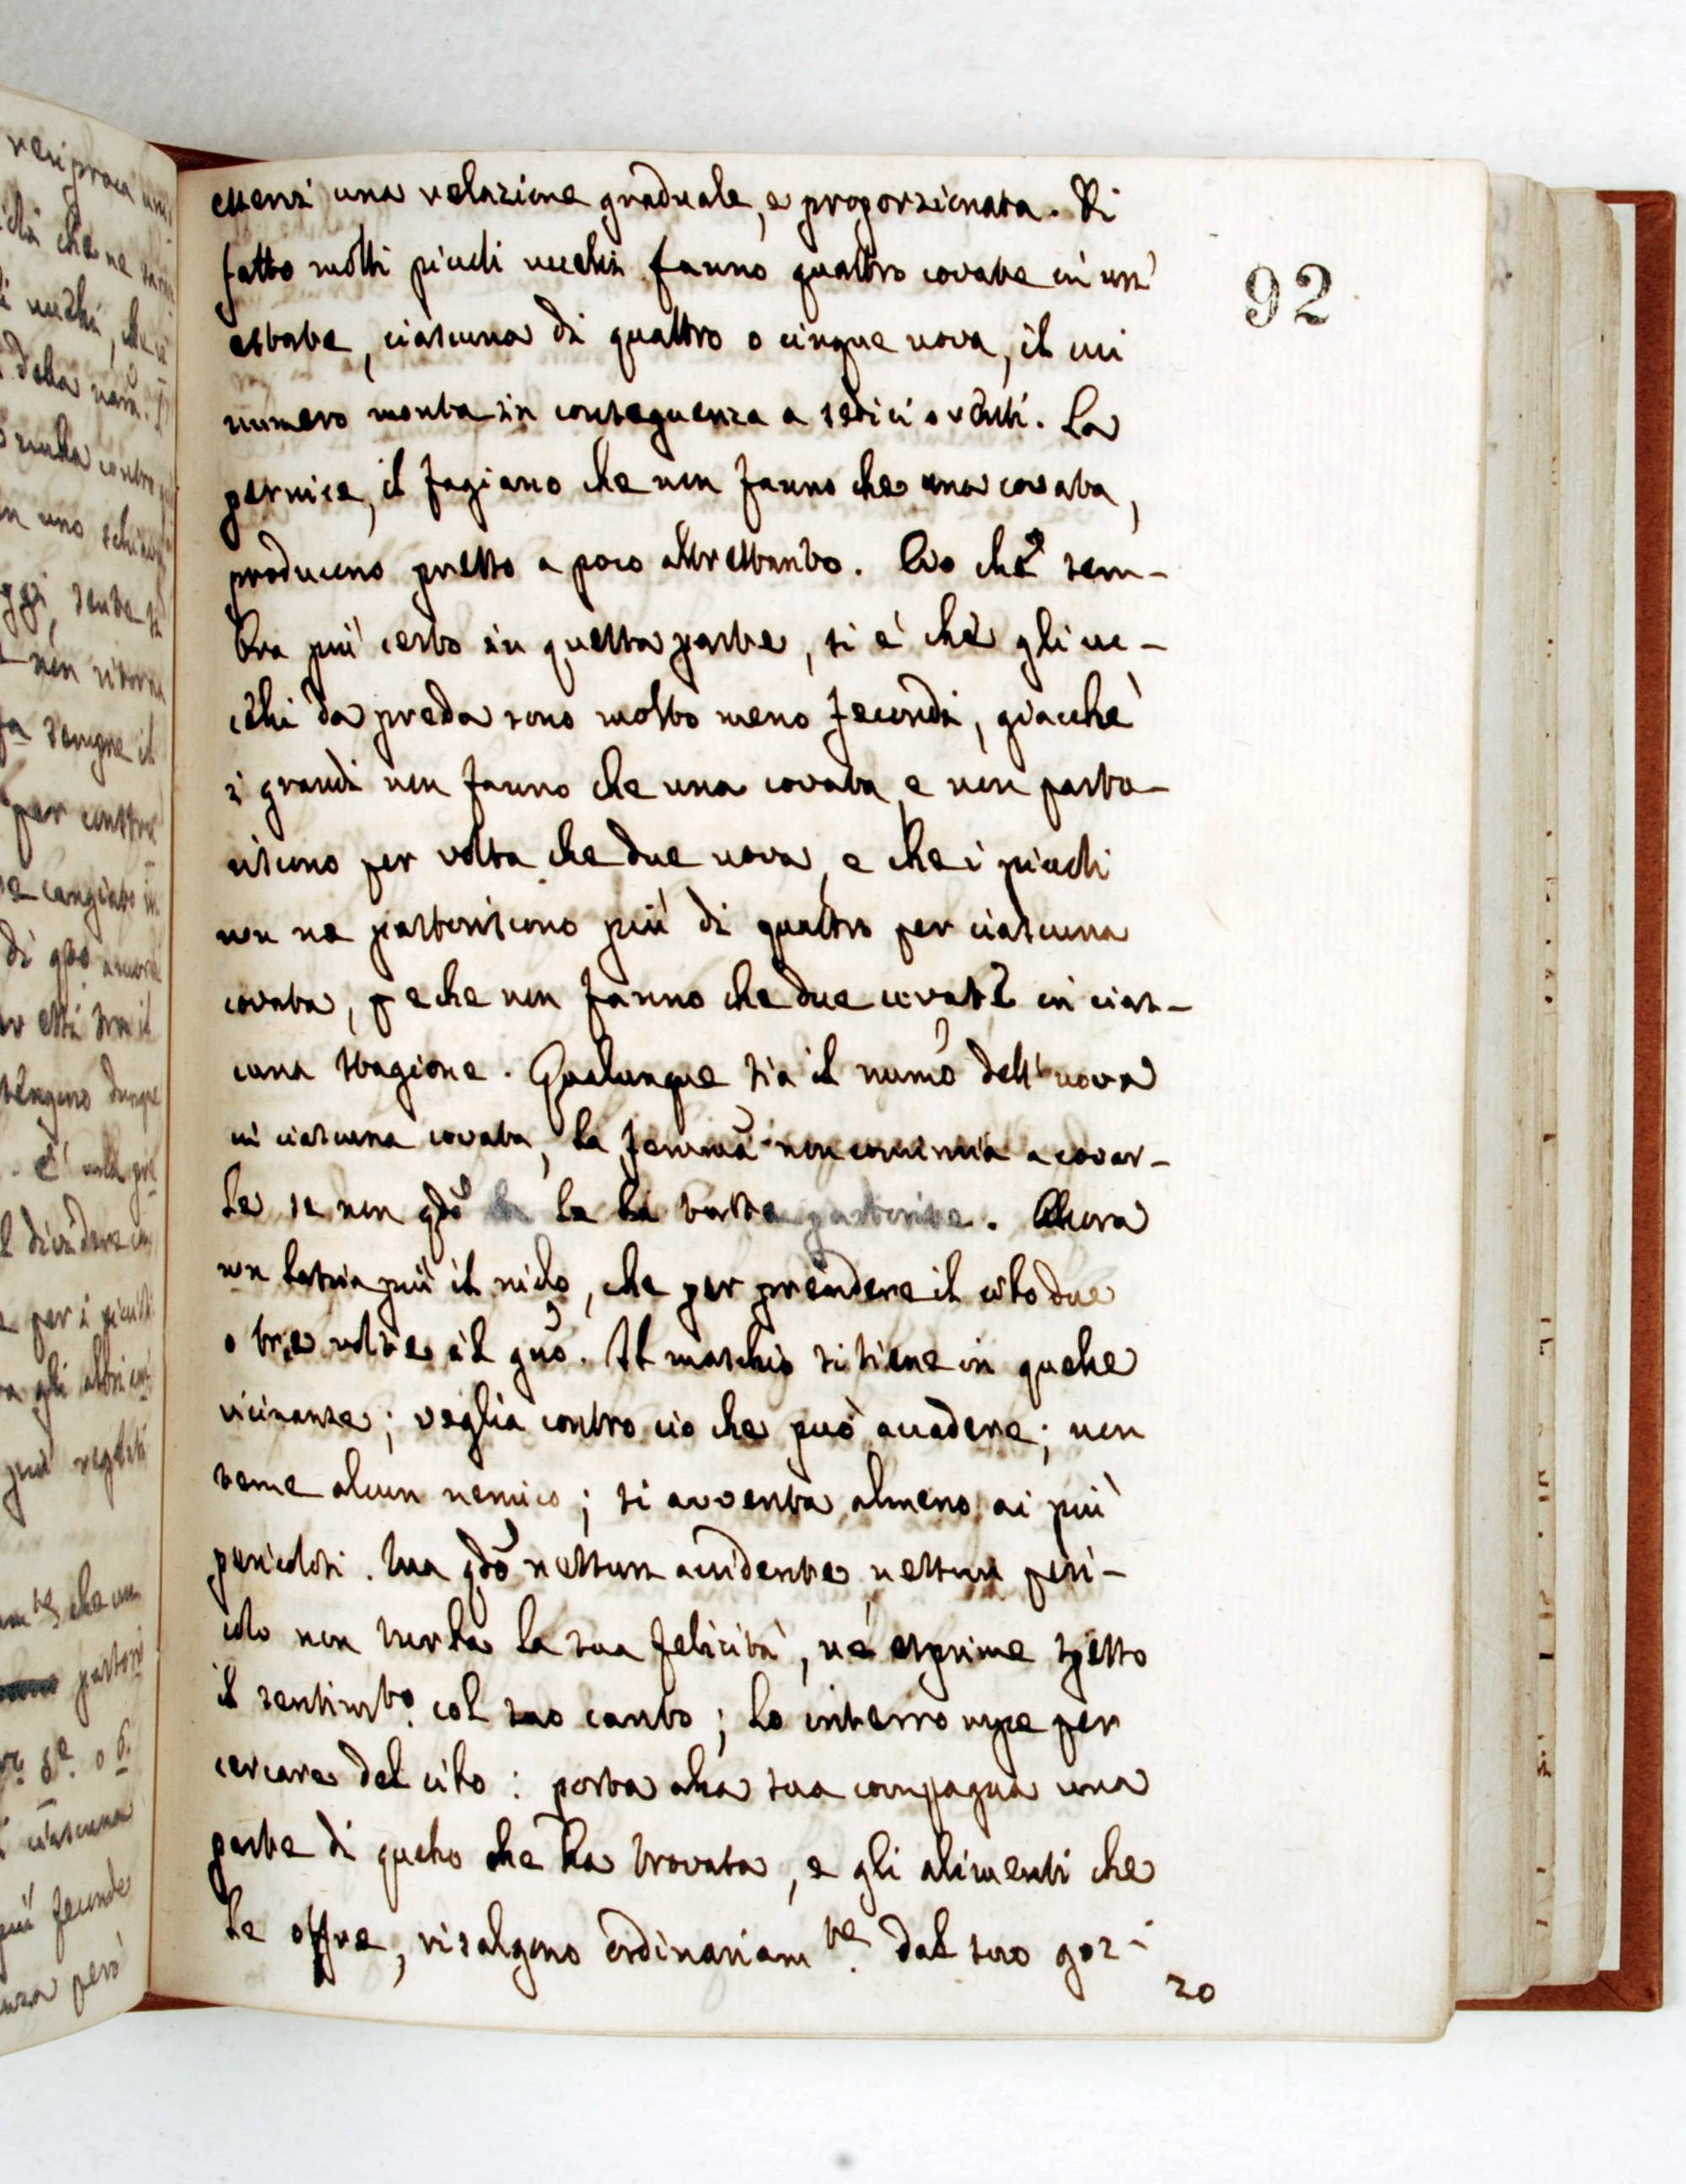 esservi una relazione graduale, e proporzionata. Di
fatto molti piccoli uccelli fanno quattro covate in un'
estate, ciascuna di quattro o cinque uova, il cui
numero monta in conseguenza a sedici o venti. La
pernice, il fagiano che non fanno che una covata,
producono presso a poco altrettanto. Ciò che sem-
bra più certo in questa parte, si è che gli uc-
celli da preda sono molto meno fecondi, giacchè
i grandi non fanno che una covata, e non parto-
riscono per volta che due uova, e che i piccoli
non ne partoriscono più di quattro per ciascuna
covata, e che non fanno che due covate in cias-
cuna stagione. Qualunque sia il numo dell'uova
in ciascuna covata, la femina non comincia a covar-
le se non qdo le ha tutte partorite. Allora
non lascia più il nido, che per prendere il cibo due
o tre volte il gno. Il maschio si tiene in quelle
vicinanze; veglia contro ciò che può accadere; non
teme alcun nemico; si avventa almeno ai più
pericolosi. Ma qdo nessun accidente, nessun peri-
colo non turba la sua felicità, nè esprime spesso
il sentimto. col suo canto; lo interrompe per
cercare del cibo: porta alla sua compagna una
parte di quello che ha trovata, e gli alimenti che
le offre, risalgono ordinariamte. dal suo goz-
zo
92